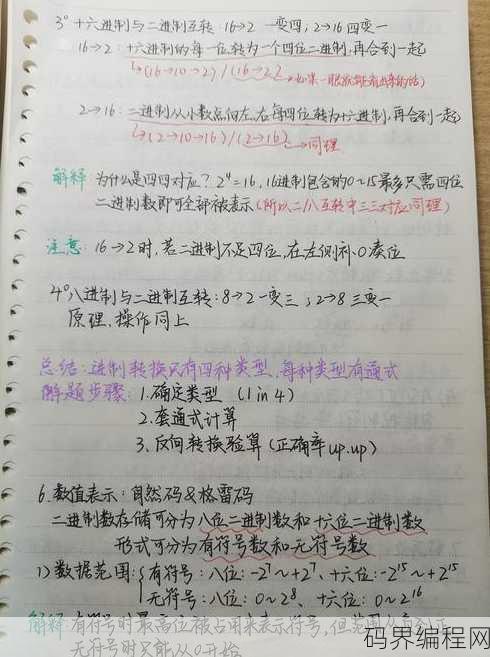 3° 十六进制与二进制互转：16→2 一变四，2→16 四变一
16→2：十六进制的每一位转为一个四位二进制，再合到一起
↳(16→10→2)/(16→2)
2→16：二进制从小数点向左、右每四位转为十六进制，再合到一起
↳(2→10→16)/(2→16)→同理
解释 为什么是四四对应？2⁴=16，16进制包含的0~15最多只需四位
二进制数即可全部被表示(所以二八互转中三三对应同理)
注意：16→2时，若二进制不足四位，在左侧补0凑位
4° 八进制与二进制互转：8→2一变三；2→8三变一
原理、操作同上
总结：进制转换只有四种类型，每种类型有通式
解题步骤：1.确定类型 (1 in 4)
2.套通式计算
3.反向转换验算(正确率up.up)
6.数值表示：自然码&格雷码
二进制数存储可分为八位二进制数和十六位二进制数
形式可分为有符号数和无符号数
1)数据范围：{有符号：八位：-2⁷~+2⁷、十六位：-2¹⁵~+2¹⁵
无符号：八位：0~2⁸、十六位：0~2¹⁶
解释：有符号时最高位被占用来表示符号，但范围
无符号时只能从0开始
码界编程网